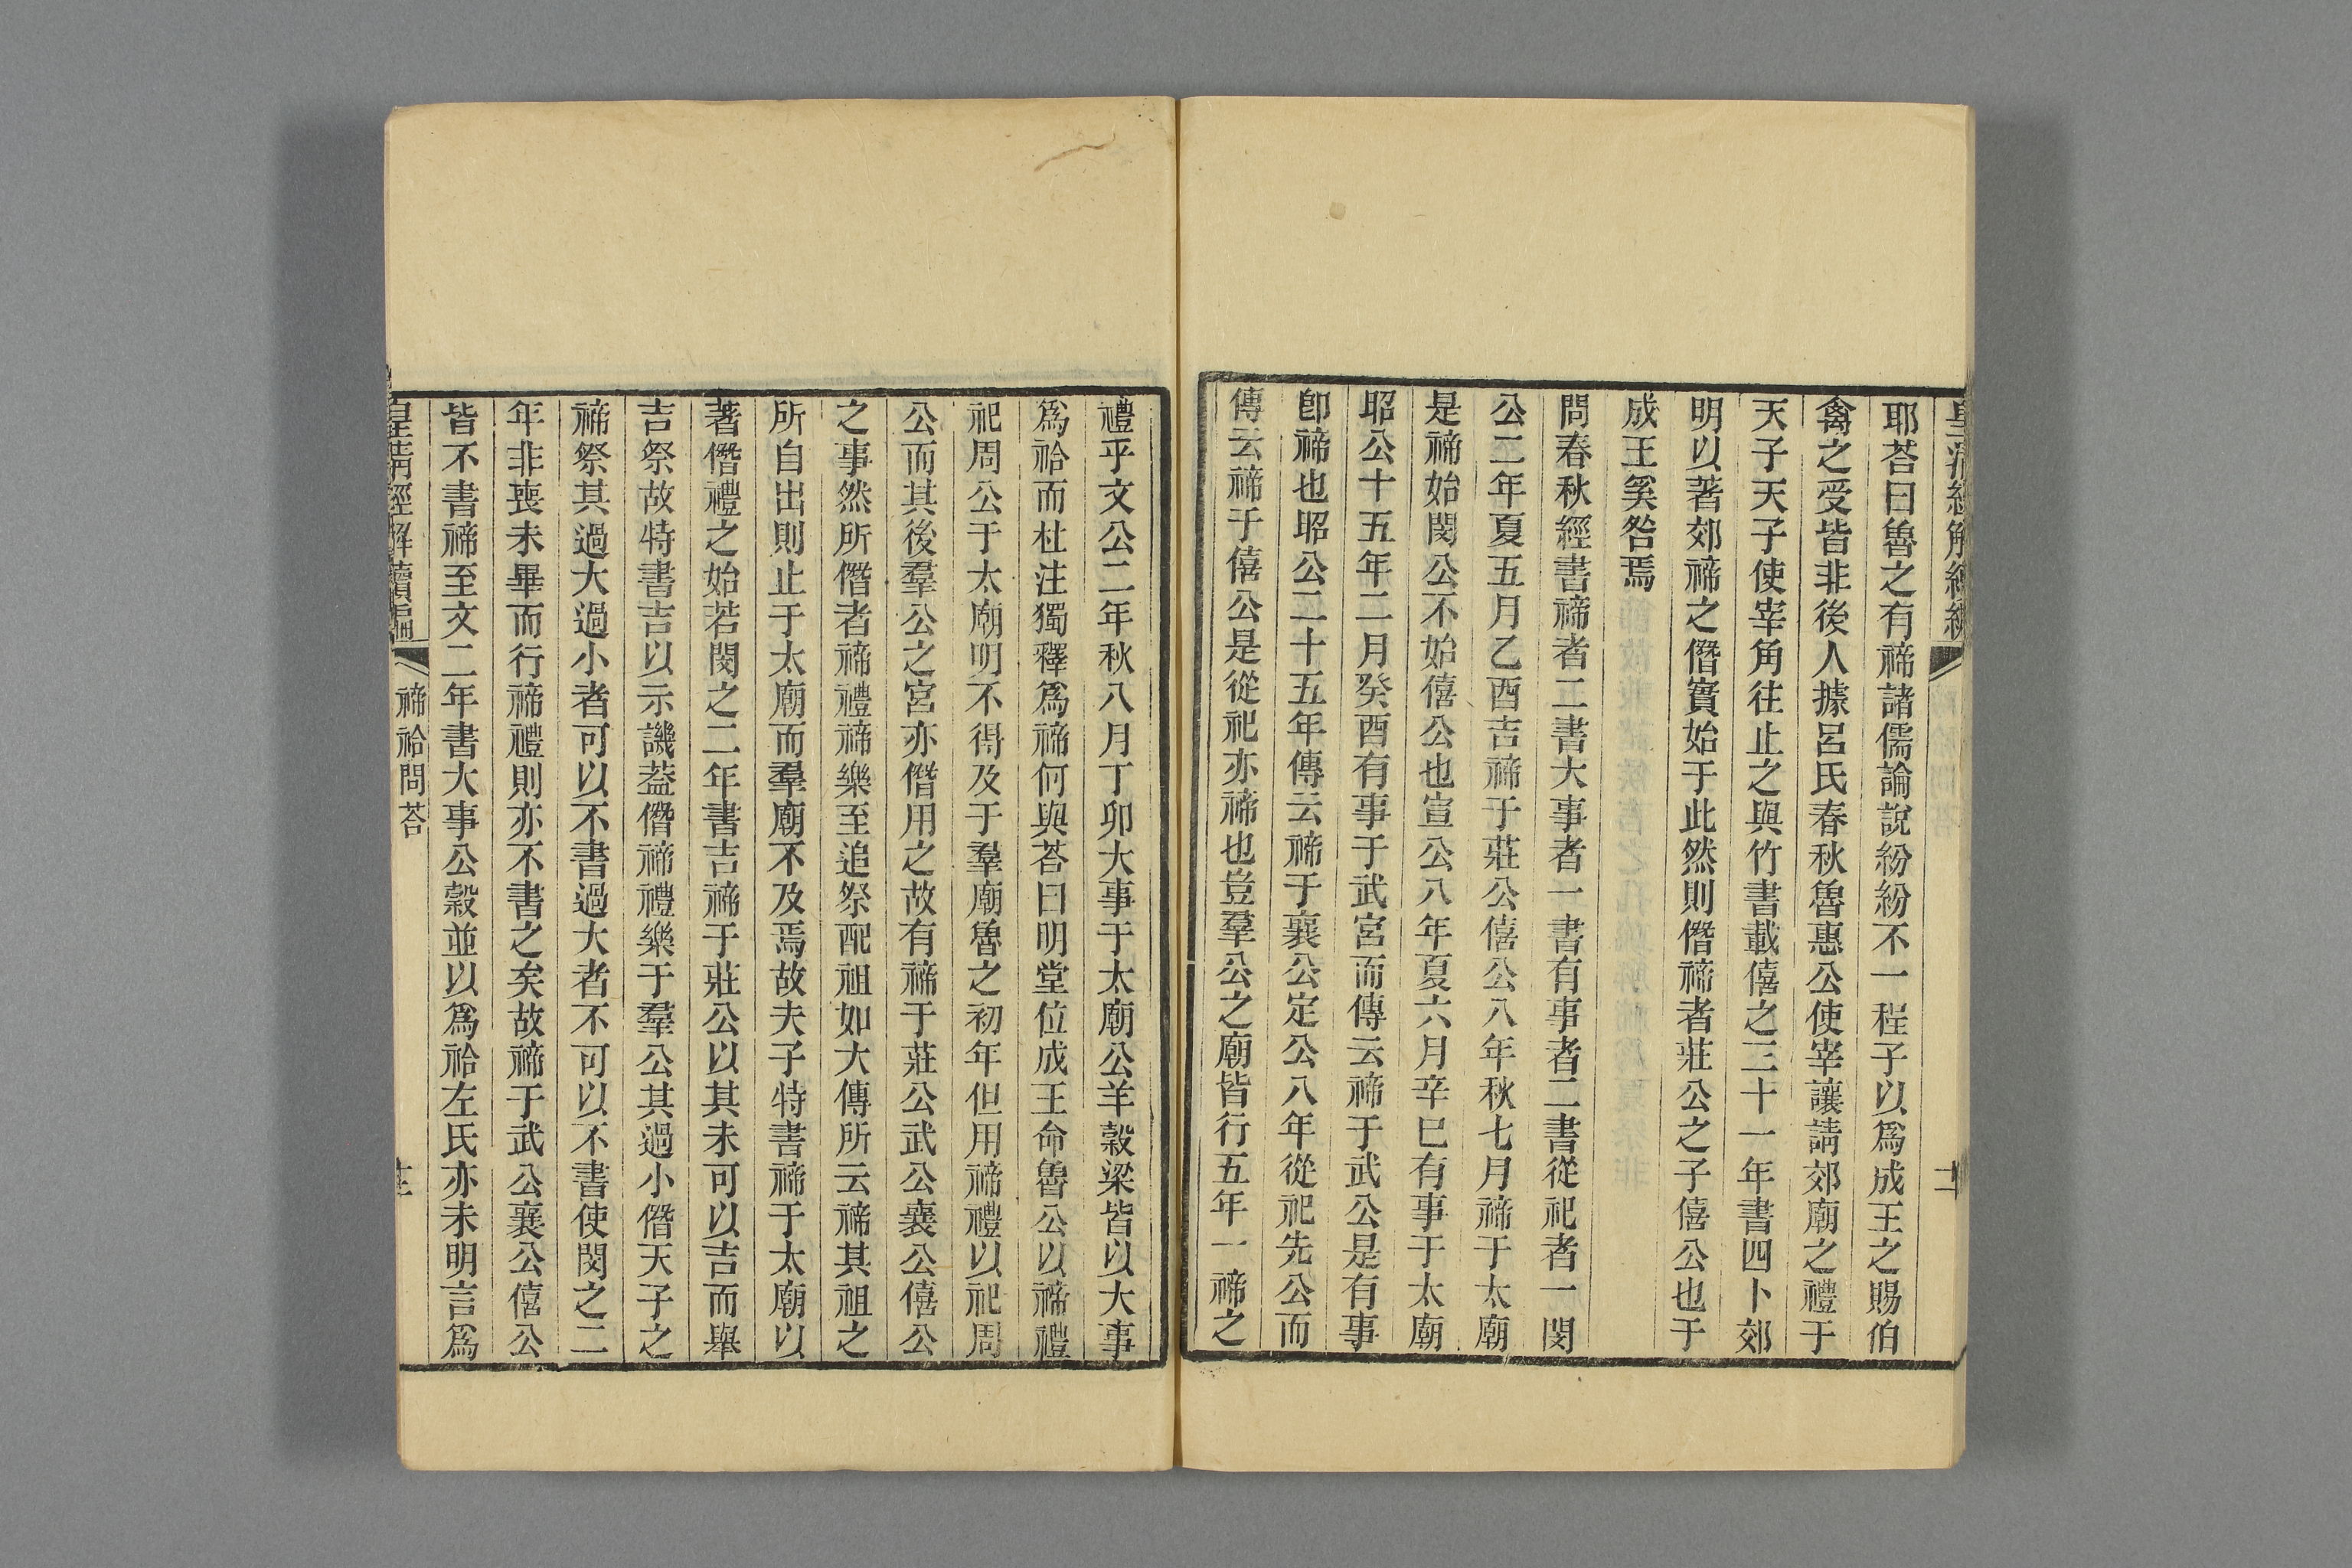 耶荅曰魯之有禘諸儒論說紛紛不一程子以爲成王之賜伯
禽之受皆非後人據呂氏春秋魯惠公使宰讓請郊廟之禮于
天子天子使宰角往止之與竹書載僖之三十一年書四卜郊
明以著郊禘之僭實始于此然則僭禘者莊公之子僖公也于
成王奚咎焉
問春秋經書禘者二書大事者一書有事者二書從祀者一閔
公二年夏五月乙酉吉禘于莊公僖公八年秋七月禘于太廟
是禘始閔公不始僖公也宣公八年夏六月辛巳有事于太廟
昭公十五年二月癸酉有事于武宮而傳云禘于武公是有事
卽禘也昭公二十五年傳云禘于襄公定公八年從祀先公而
傳云禘于僖公是從祀亦禘也豈羣公之廟皆行五年一禘之
禮乎文公二年秋八月丁卯大事于太廟公羊穀梁皆以大事
爲祫而杜注獨釋爲禘何與荅曰明堂位成王命魯公以禘禮
祀周公于太廟明不得及于羣廟魯之初年但用禘禮以祀周
公而其後羣公之宮亦僭用之故有禘于莊公武公襄公僖公
之事然所僭者禘禮禘樂至追祭配祖如大傳所云禘其祖之
所自出則止于太廟而羣廟不及焉故夫子特書禘于太廟以
著僭禮之始若閔之二年書吉禘于莊公以其未可以吉而舉
吉祭故特書吉以示譏葢僭禘禮樂于羣公其過小僭天子之
禘祭其過大過小者可以不書過大者不可以不書使閔之二
年非喪未畢而行禘禮則亦不書之矣故禘于武公襄公僖公
皆不書禘至文二年書大事公穀並以爲祫左氏亦未明言爲
皇清經解續編 禘祫問荅